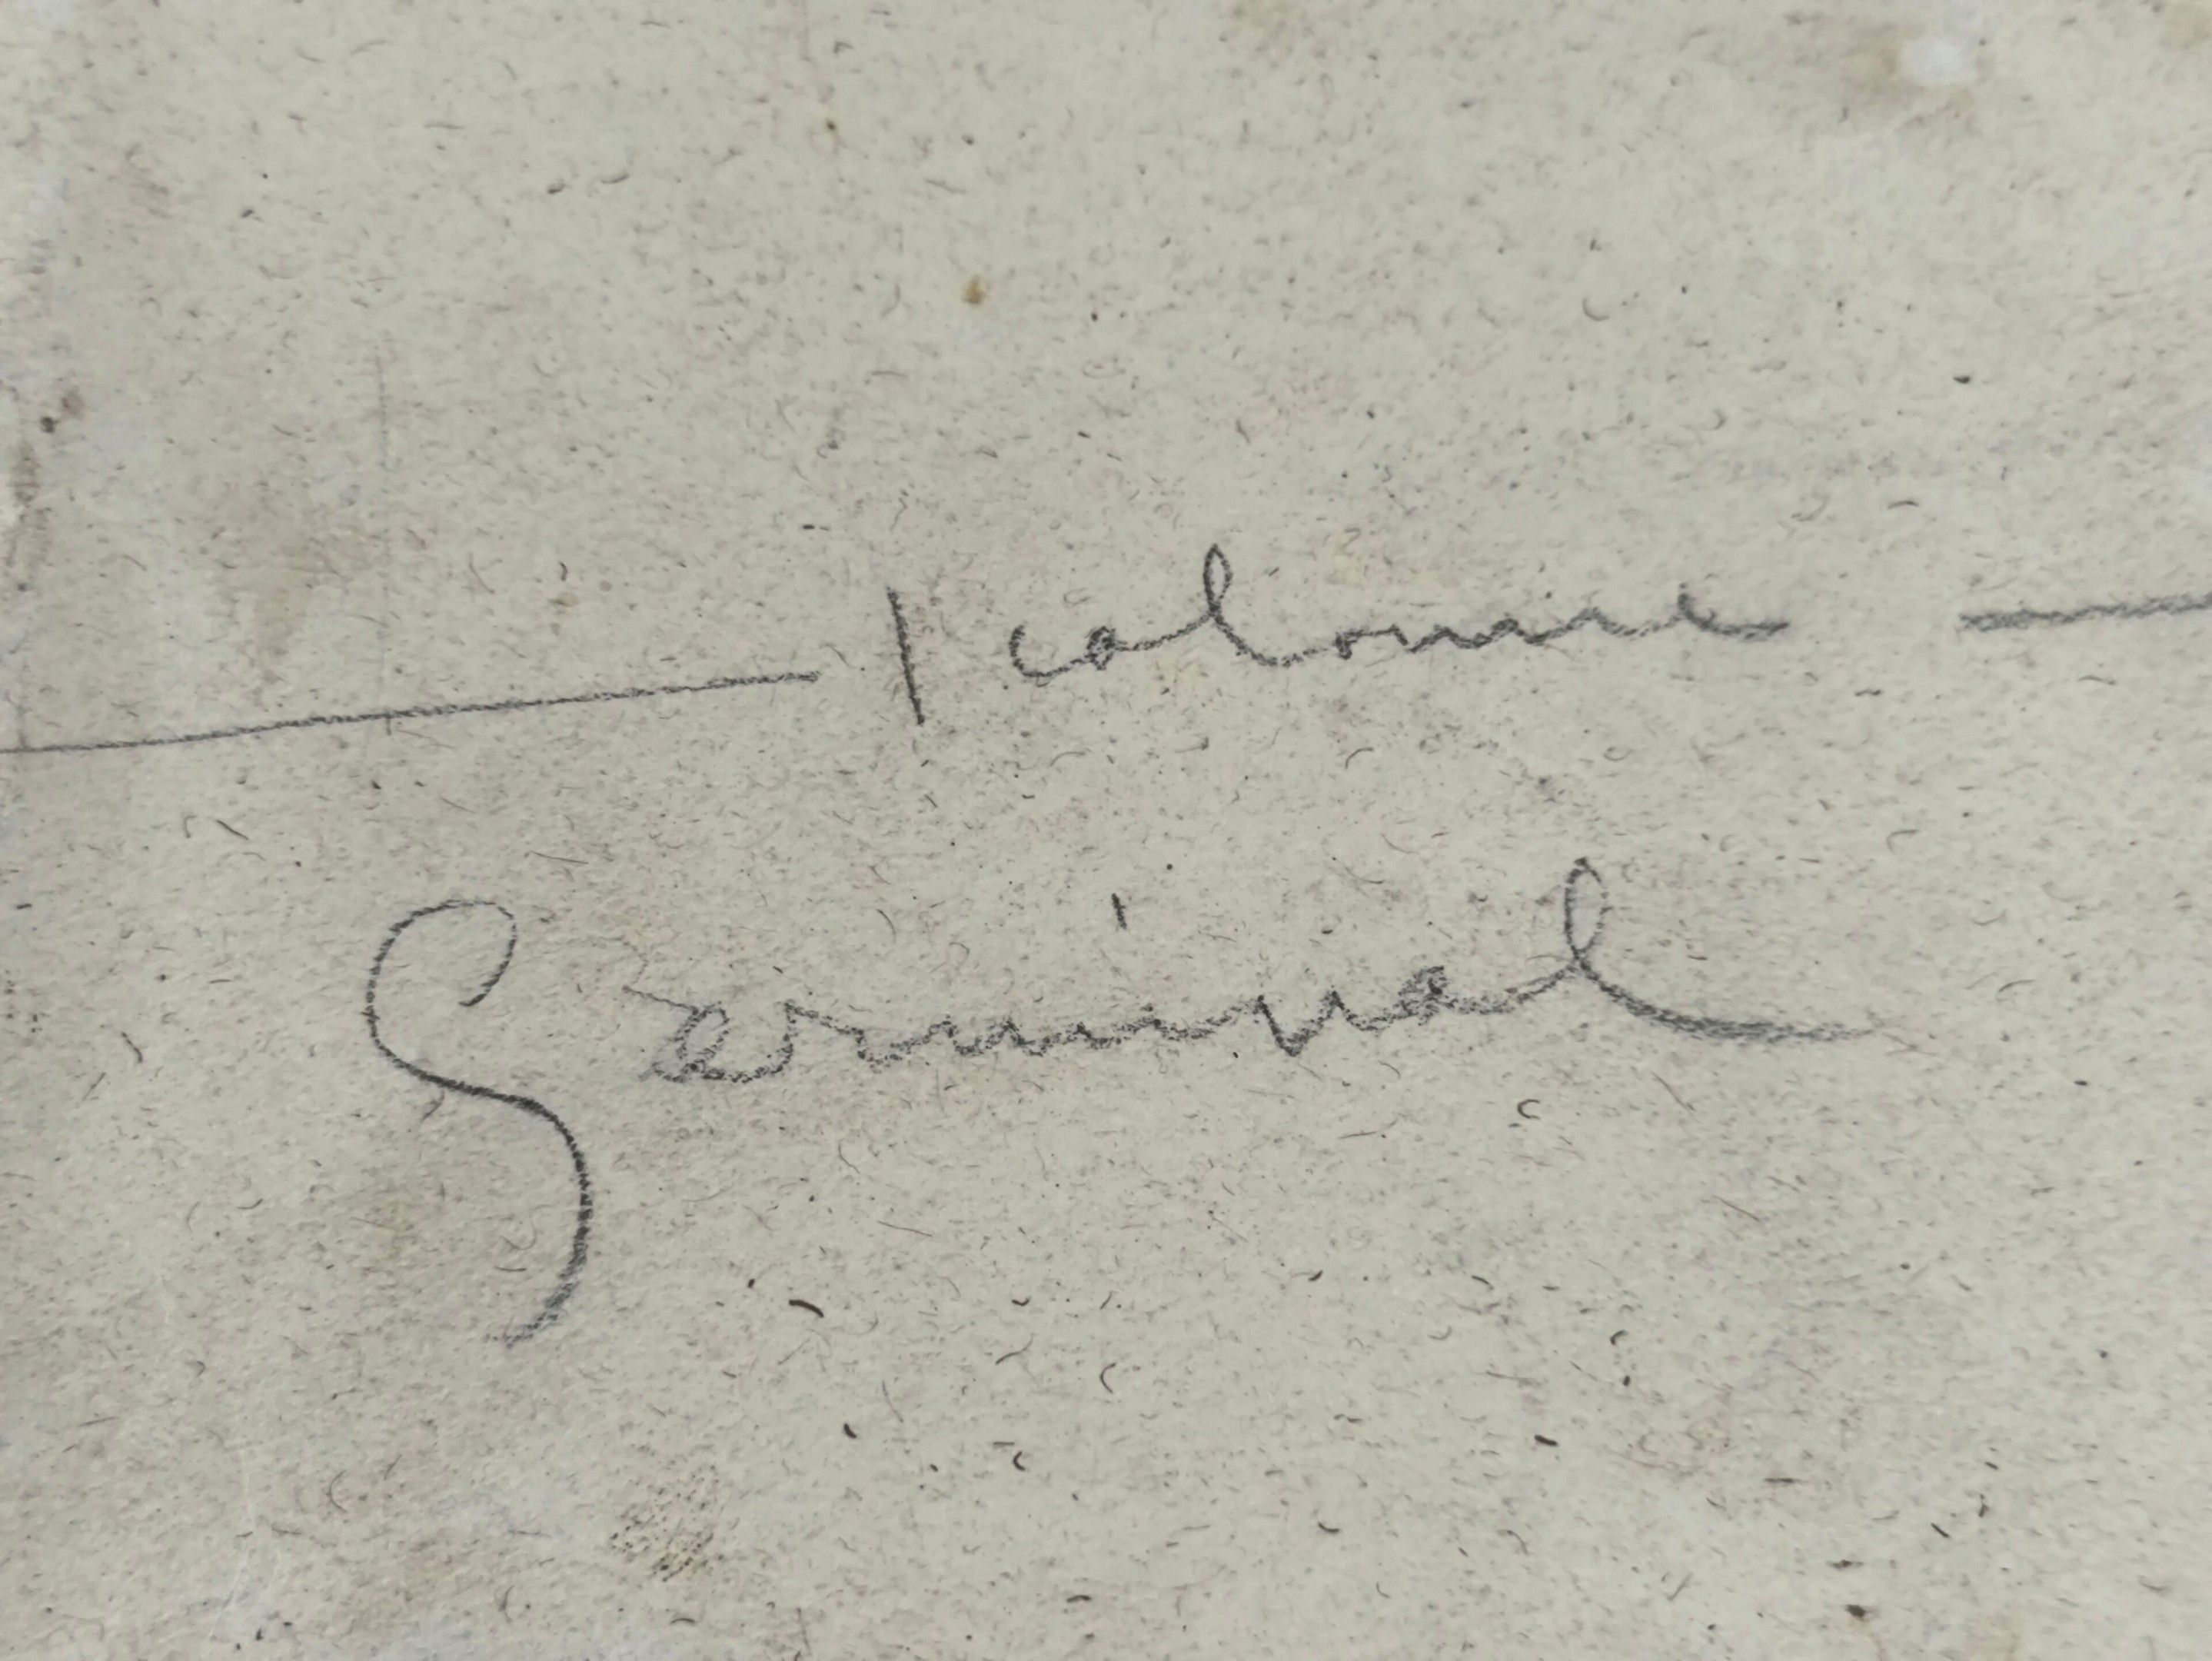 — 1 colonne —
Germinal